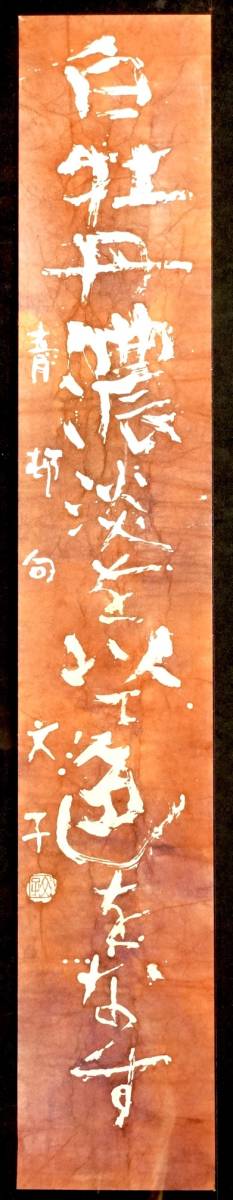 白牡丹濃淡を以て色をなす
青邨句
文子